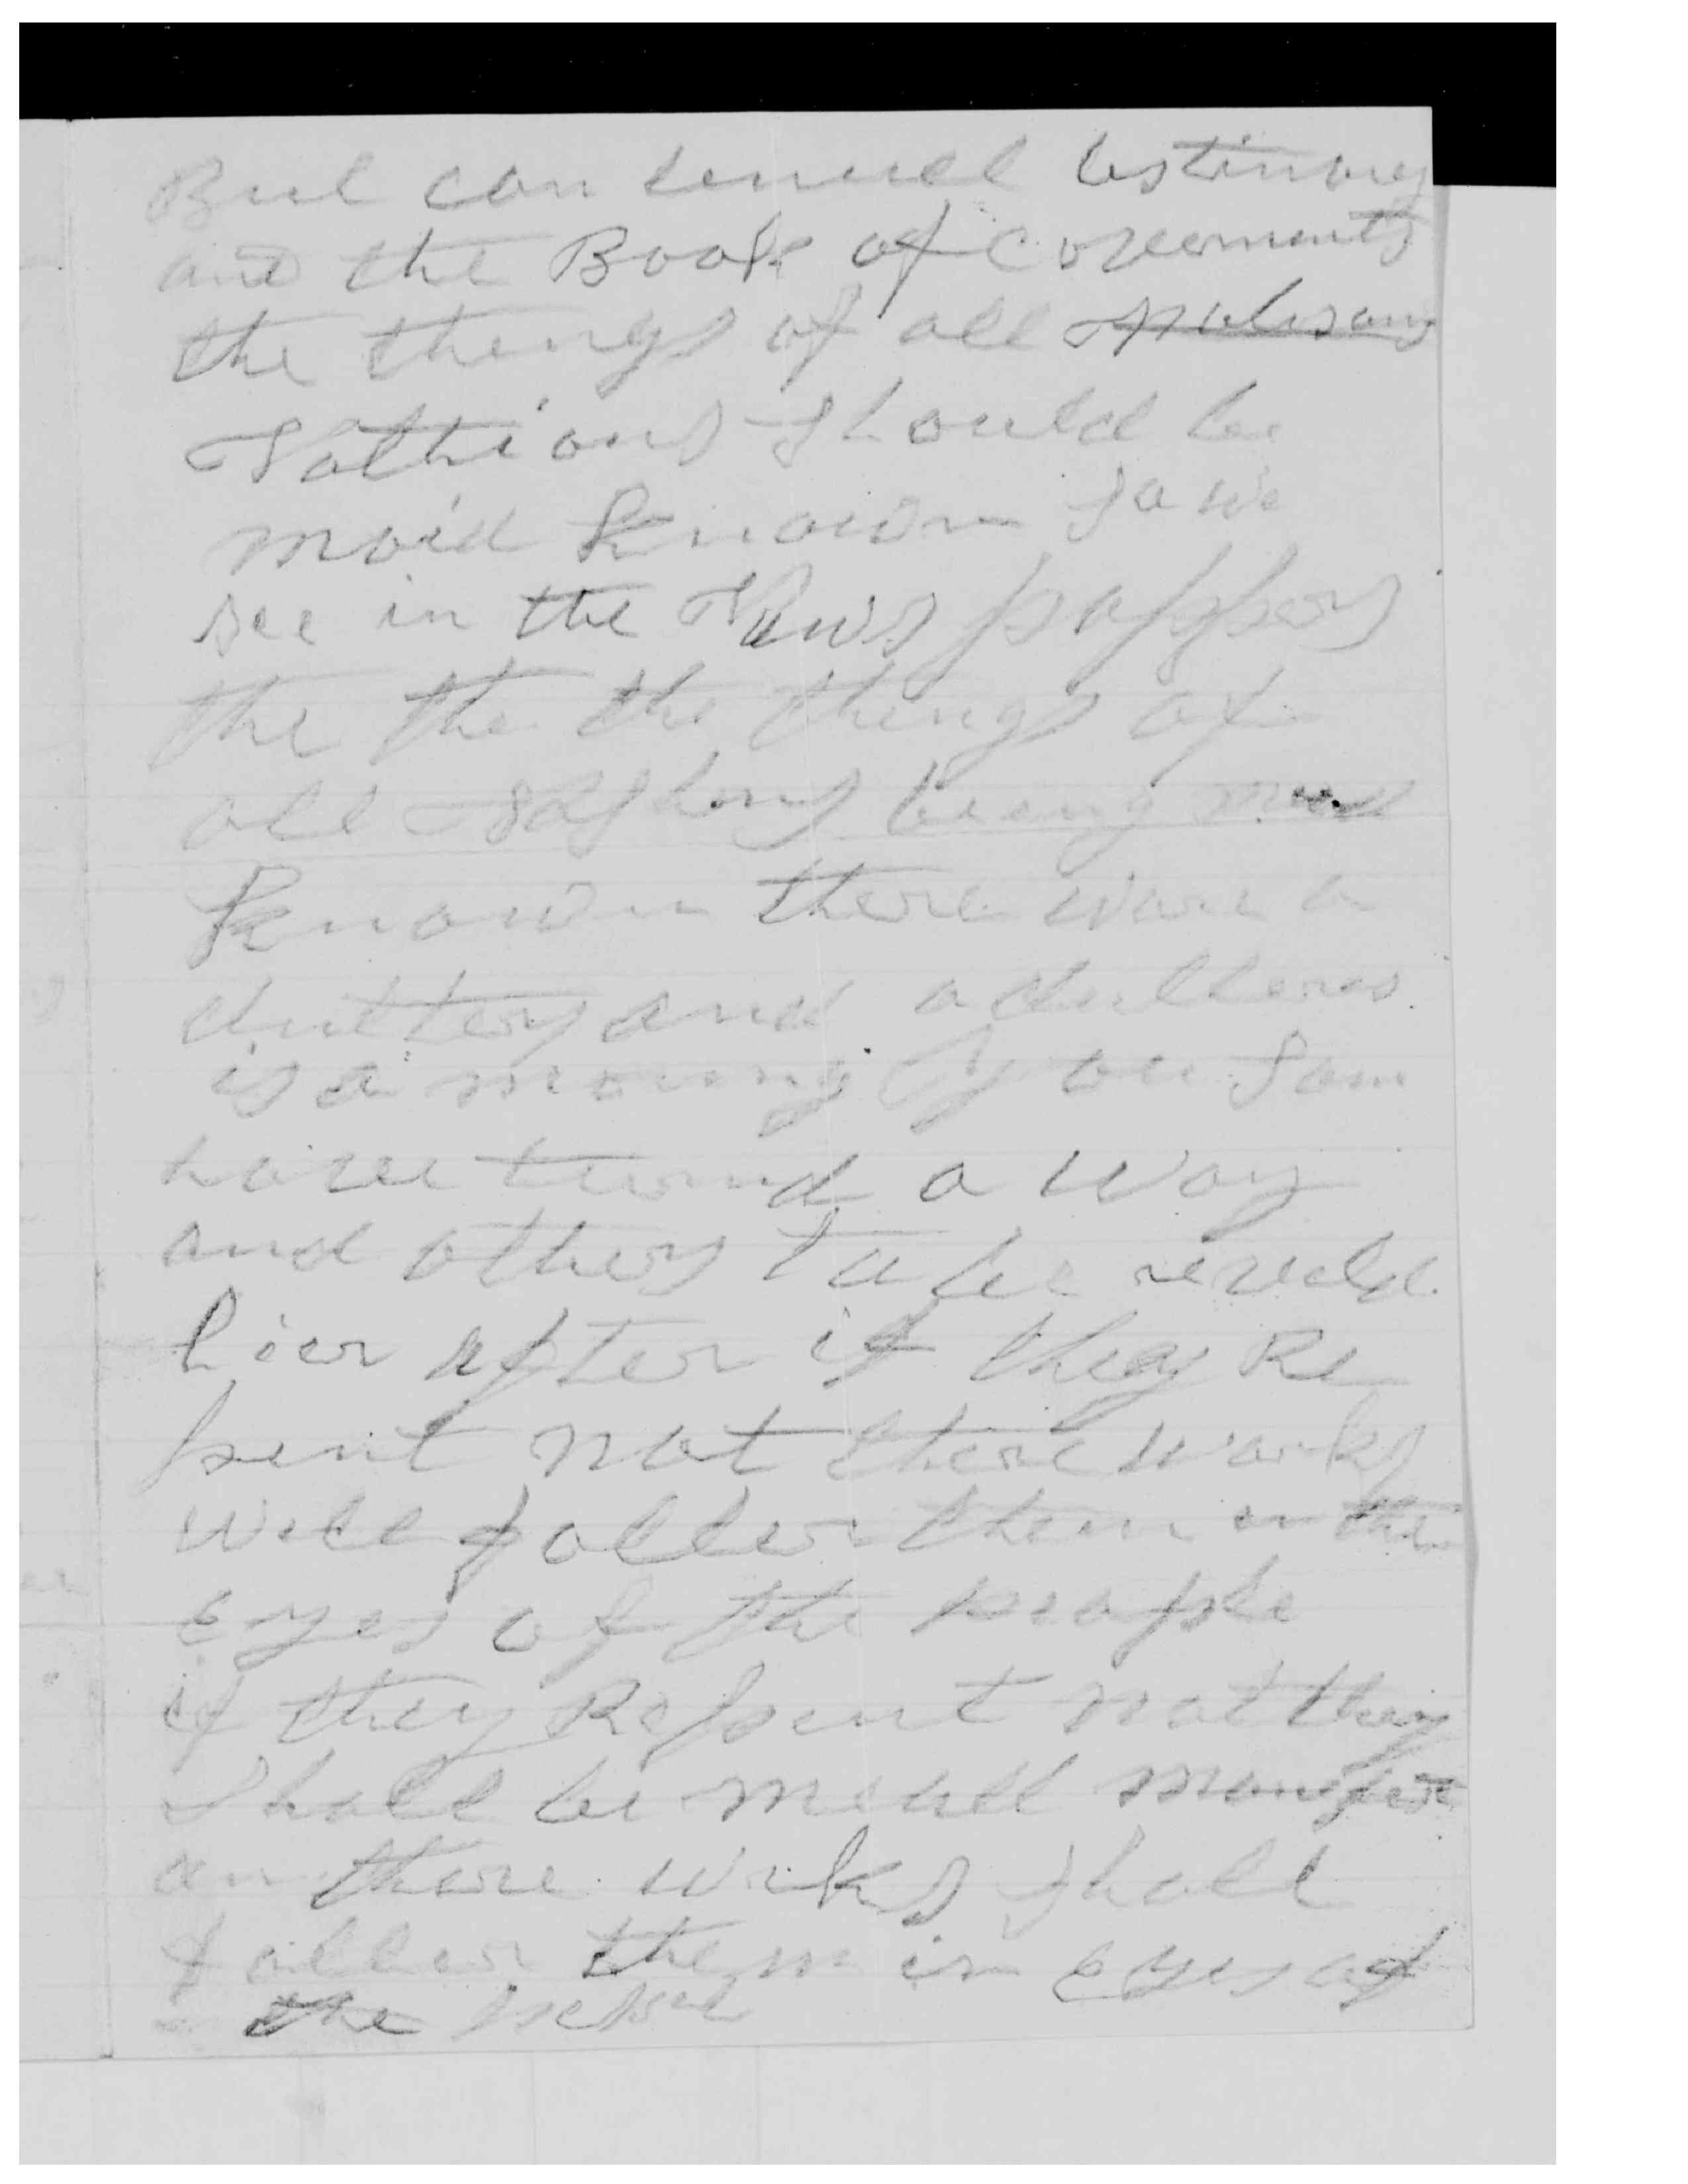 But can tenuel testimony
and the Book of Covernments
the things of all
Nathions should be
maid known so we
see in the News pappers
the the the things of
all Nashons being
known there ware a
duttery and adulteres
is a moung you Some
have turnd a way
and others to be reveld
hier after if they Re
pent not there works
will foller them in the
eyes of the people
if they Repent not they
shall be maid manifest
an there wrks shall
foller them in eyes of
the